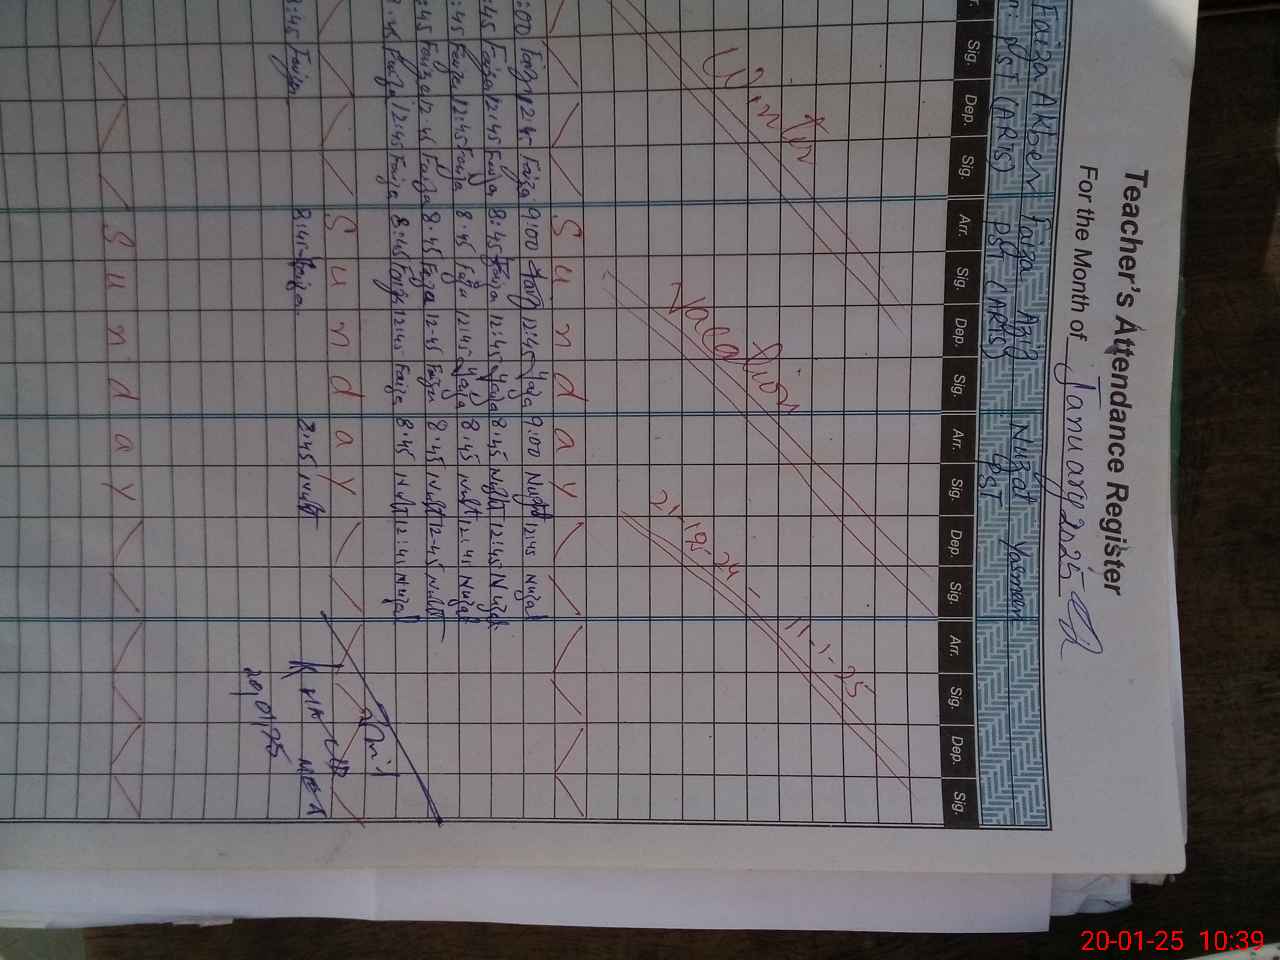 Teacher's Attendance Register
For the Month of January 2025
Faiza Akber Faiza Aziz Nuzat Yasmeen
PST (ARTS) PST (ARTS) PST
Sig. Dep. Sig. Arr. Sig. Dep. Sig. Arr. Sig. Dep. Sig. Arr. Sig. Dep. Sig.
Winter Vacation
11-1-25
Sunday
:00 12:45 Faiza 9:00 12:45 9:00 Nuzat 12:45 Nuzat
:45 Faiza 12:45 Faiza 8:45 Faiza 12:45 8:45 Nuzat 12:45 Nuzat
:45 Faiza 12:45 Faiza 8:45 Faiza 12:45 8:45 Nuzat 12:45 Nuzat
:45 Faiza 12:45 Faiza 8:45 Faiza 12-45 Faiza 8:45 Nuzat 12-45 Nuzat
8:45 Faiza 12:45 Faiza 8:45 Faiza 12:45 Faiza 8:45 Nuzat 12:45 Nuzat
Sunday
8:45 Faiza 8:45 Faiza 8:45 Nuzat
20/01/25
Sunday
20-01-25 10:39